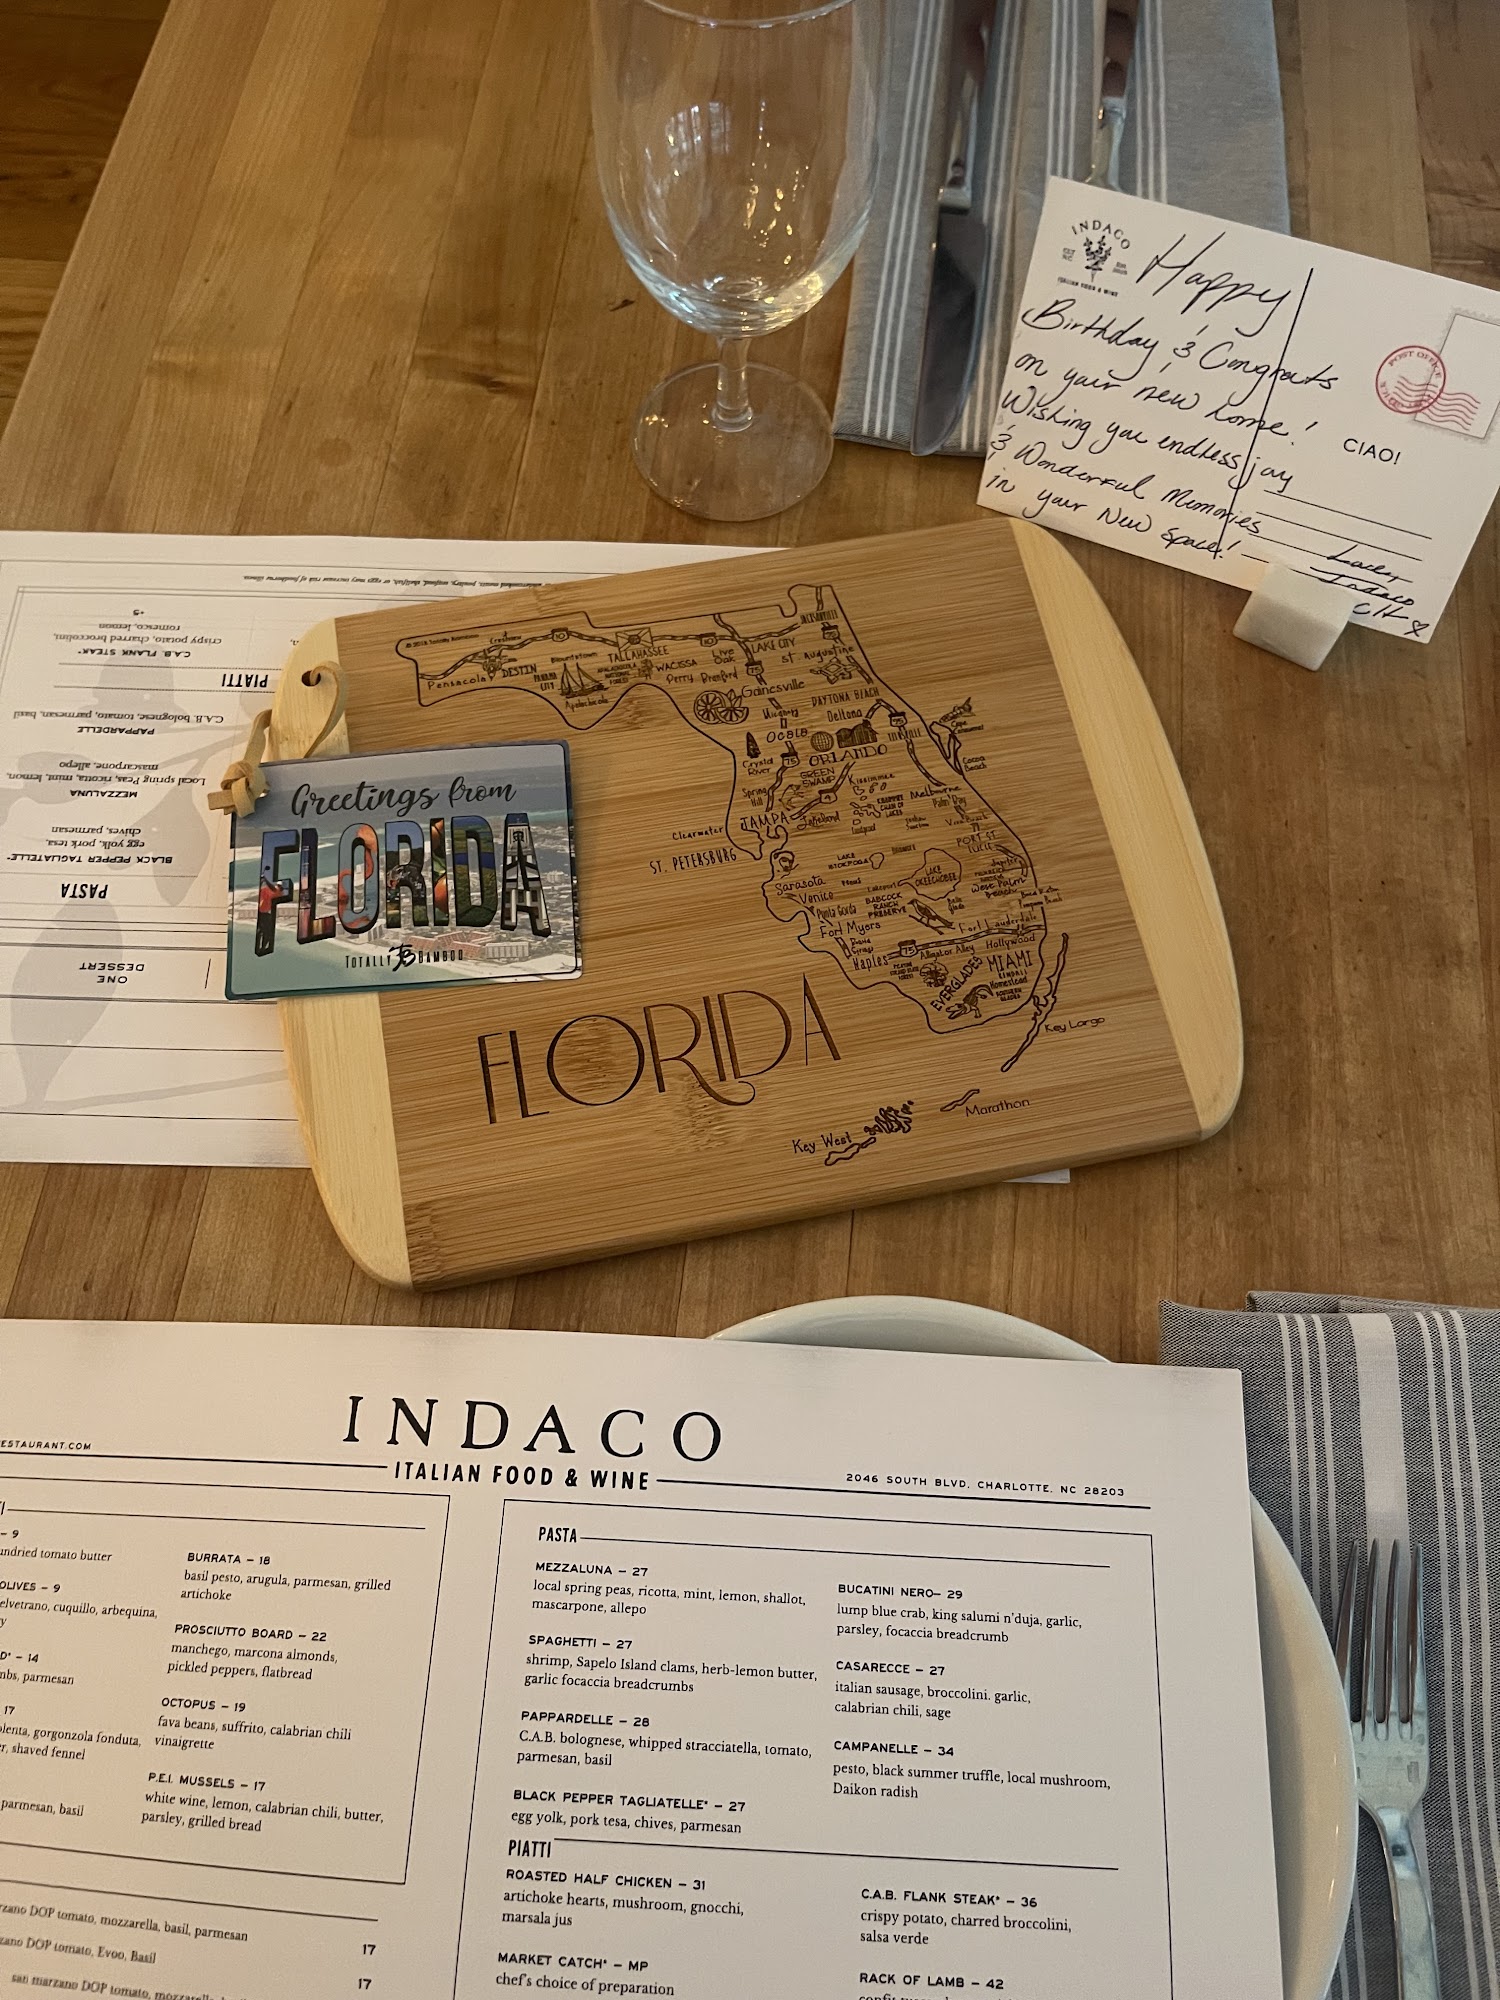 INDACO
ITALIAN FOOD & WINE
Happy
Birthday & Congrats
on your new home!
Wishing you endless joy
& Wonderful Memories
in your New space!
Indaco
CLT
POST OFFICE
CIAO!
PIATTI
C.A.B. FLANK STEAK*
crispy potato, charred broccolini,
romesco, lemon
+5
PAPPARDELLE
C.A.B. bolognese, tomato, parmesan, basil
MEZZALUNA
Local spring Peas, ricotta, mint, lemon,
mascarpone, allepo
BLACK PEPPER TAGLIATELLE*
egg yolk, pork tesa,
chives, parmesan
PASTA
ONE
DESSERT
Greetings from
FLORIDA
TOTALLY BAMBOO
Pensacola
DESTIN
PANAMA CITY
Blountstown
Apalachicola
TALLAHASSEE
WACISSA
Perry
Live Oak
Branford
LAKE CITY
JACKSONVILLE
St. Augustine
Gainesville
DAYTONA BEACH
Deltona
OCALA
Crystal River
ORLANDO
GREEN SWAMP
Kissimmee
Cape Canaveral
Cocoa Beach
Spring Hill
TAMPA
Lakeland
Melbourne
Palm Bay
Vero Beach
Clearwater
ST. PETERSBURG
PORT ST. LUCIE
Jupiter
LAKE OKEECHOBEE
West Palm Beach
Sarasota
Venice
Punta Gorda
BABCOCK RANCH PRESERVE
Fort Myers
Fort Lauderdale
Naples
Alligator Alley
Hollywood
EVERGLADES
MIAMI
KENDALL
Homestead
Key Largo
Marathon
Key West
FLORIDA
INDACO
ITALIAN FOOD & WINE
ESTAURANT.COM
2046 SOUTH BLVD. CHARLOTTE, NC 28203
– 9
ndried tomato butter
OLIVES – 9
elvetrano, cuquillo, arbequina,
– 14
mbs, parmesan
17
olenta, gorgonzola fonduta,
r, shaved fennel
parmesan, basil
BURRATA – 18
basil pesto, arugula, parmesan, grilled
artichoke
PROSCIUTTO BOARD – 22
manchego, marcona almonds,
pickled peppers, flatbread
OCTOPUS – 19
fava beans, suffrito, calabrian chili
vinaigrette
P.E.I. MUSSELS – 17
white wine, lemon, calabrian chili, butter,
parsley, grilled bread
rzano DOP tomato, mozzarella, basil, parmesan
17
zano DOP tomato, Evoo, Basil
17
san marzano DOP tomato,
PASTA
MEZZALUNA – 27
local spring peas, ricotta, mint, lemon, shallot,
mascarpone, allepo
SPAGHETTI – 27
shrimp, Sapelo Island clams, herb-lemon butter,
garlic focaccia breadcrumbs
PAPPARDELLE – 28
C.A.B. bolognese, whipped stracciatella, tomato,
parmesan, basil
BLACK PEPPER TAGLIATELLE* – 27
egg yolk, pork tesa, chives, parmesan
BUCATINI NERO– 29
lump blue crab, king salumi n'duja, garlic,
parsley, focaccia breadcrumb
CASARECCE – 27
italian sausage, broccolini. garlic,
calabrian chili, sage
CAMPANELLE – 34
pesto, black summer truffle, local mushroom,
Daikon radish
PIATTI
ROASTED HALF CHICKEN – 31
artichoke hearts, mushroom, gnocchi,
marsala jus
MARKET CATCH* – MP
chef's choice of preparation
C.A.B. FLANK STEAK* – 36
crispy potato, charred broccolini,
salsa verde
RACK OF LAMB – 42